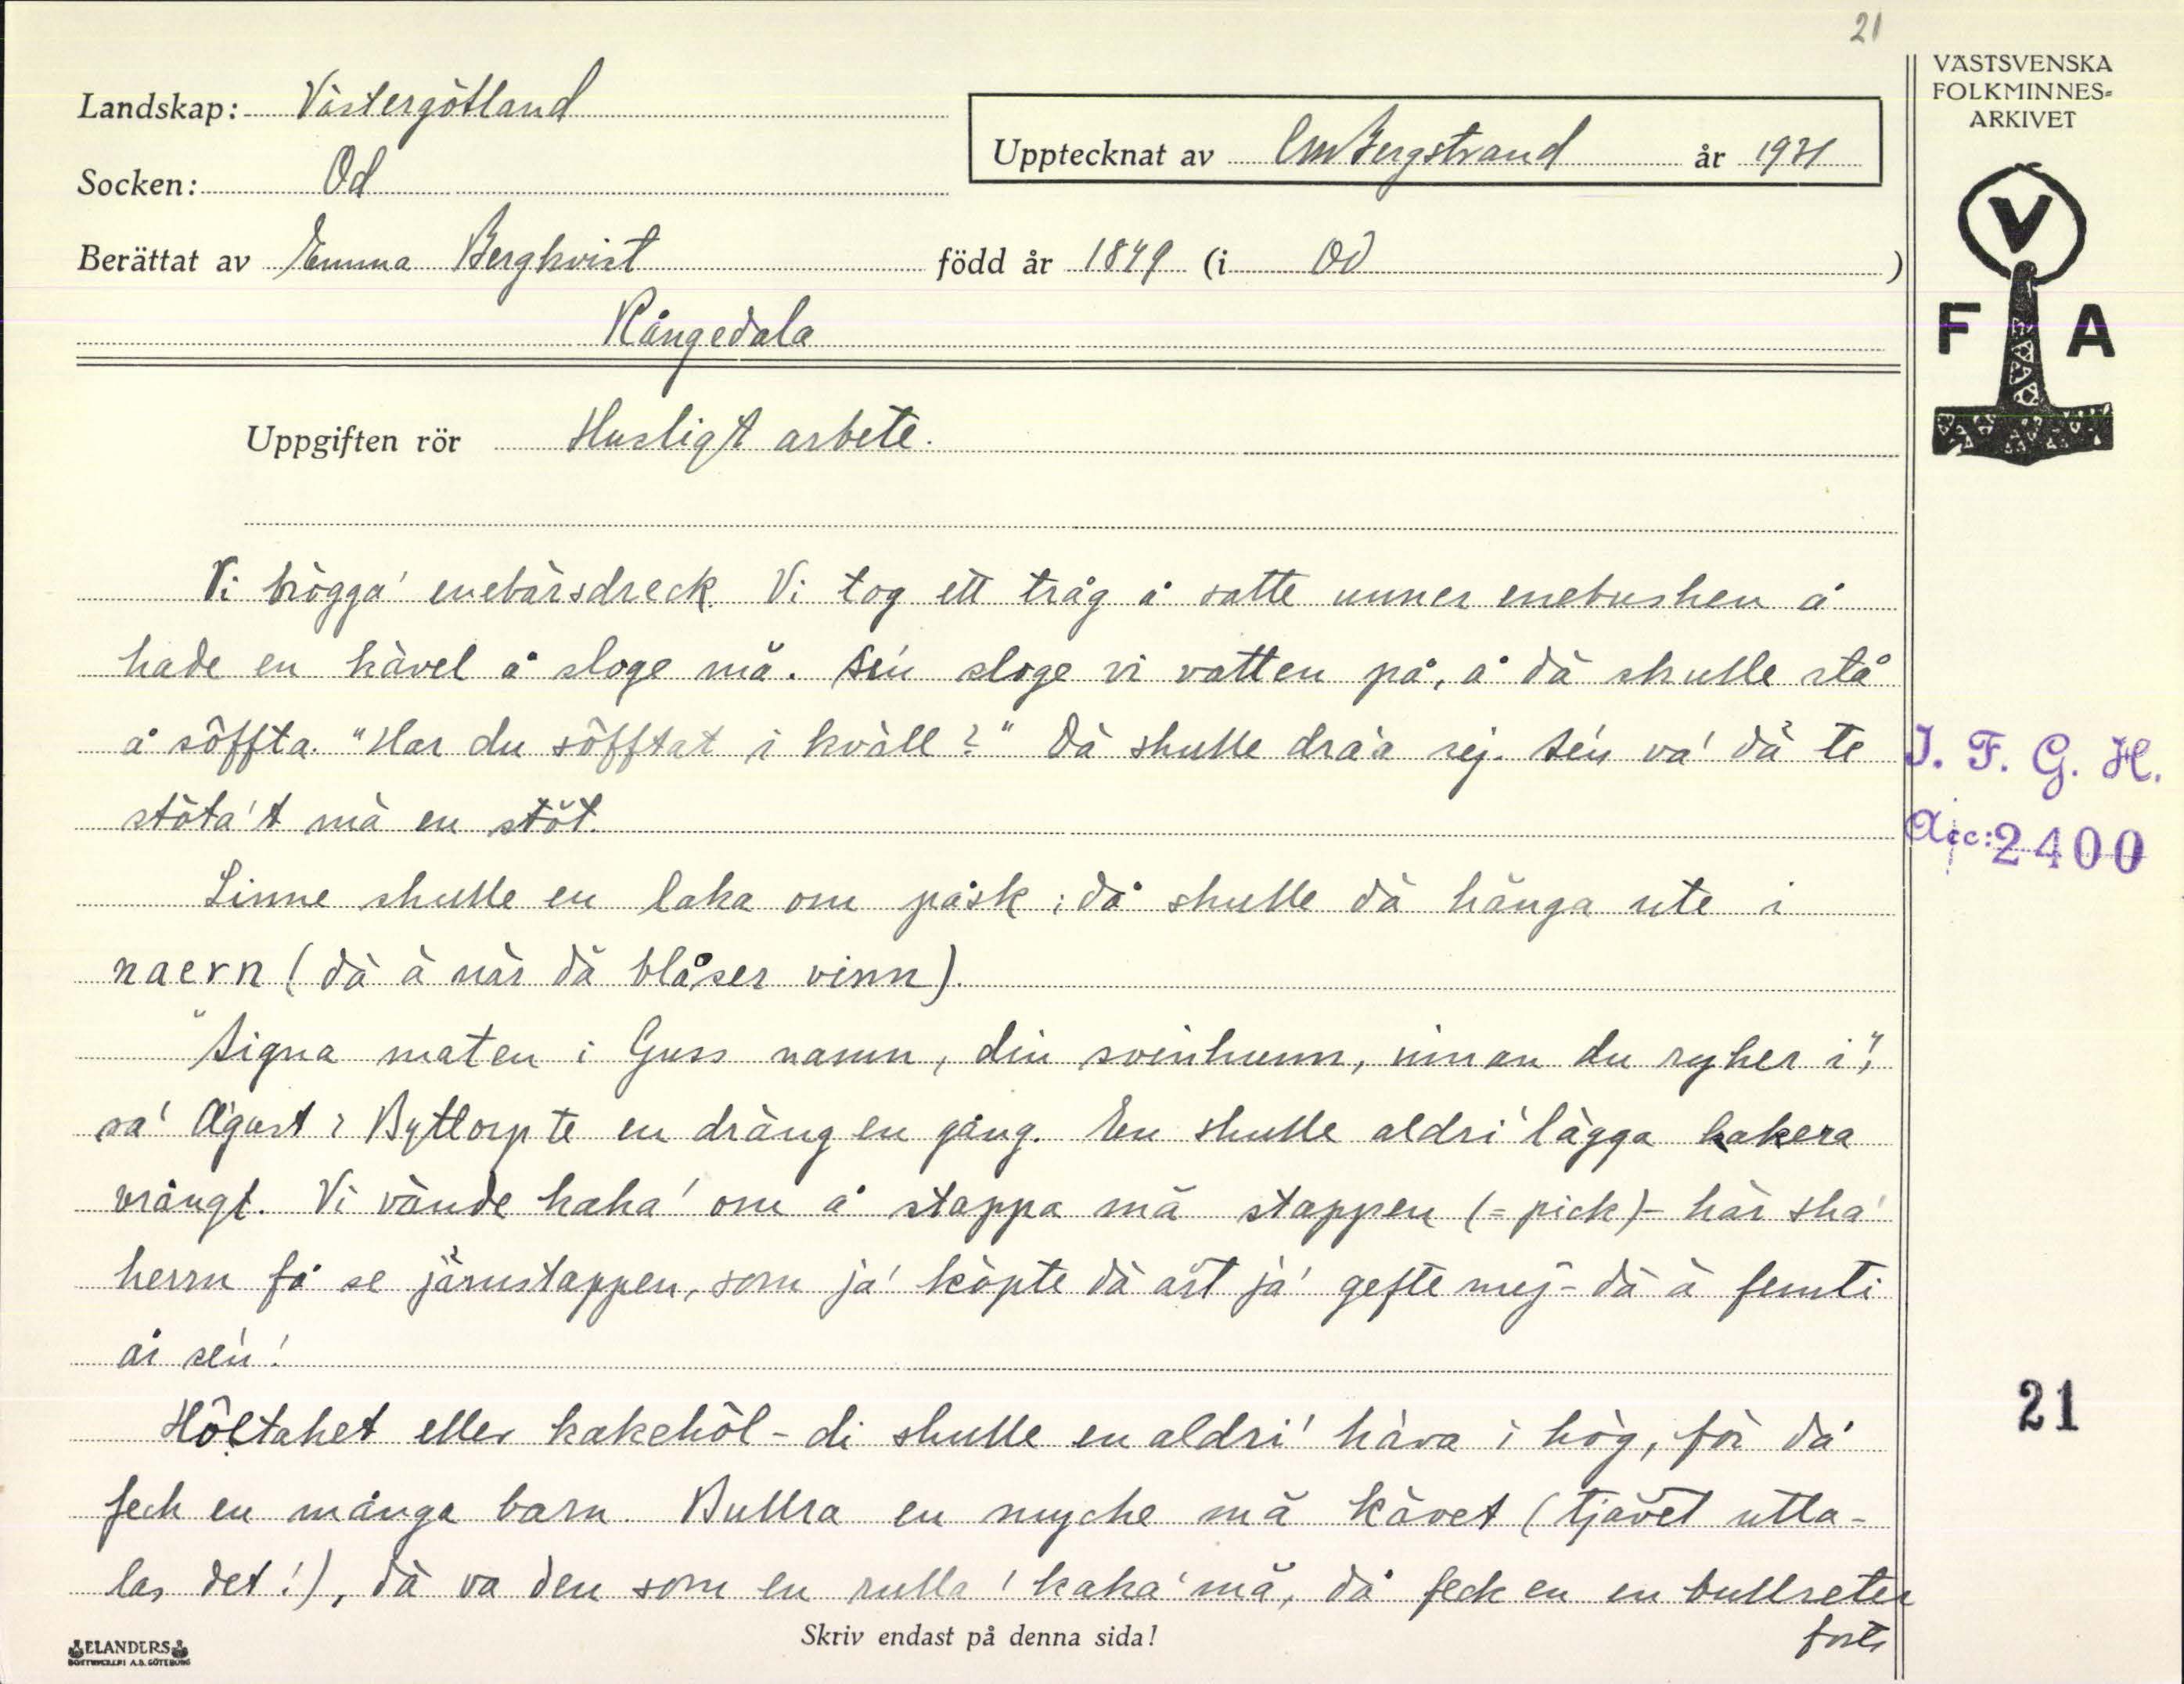 21
VÄSTSVENSKA
FOLKMINNES-
ARKIVET
Landskap: Västergötland
Upptecknat av CM Bergstrand år 1931
Socken: Od
Berättat av Emma Bergkvist född år 1849 (i Od )
Rångedala
V
F A
Uppgiften rör Husligt arbete.
Vi brögga' enebärsdreck. Vi tog ett tråg å satte unner enebusken å
hade en kävel å sloge mä. Sen sloge vi vatten på, å dä skulle stå
å söffta. "Har du söfftat i kväll?" Dä skulle dra'a sej. Sen va' dä te
stöta't mä en stöt.
I. F. G. H.
Acc: 2400
Linne skulle en laka om påsk; då skulle dä hänga ute i
naern (dä ä när dä blåser vinn).
"Signa maten i Guss namn, din svinhunn, innan du ryker i",
sa' A'gust i Byttorp te en dräng en gång. En skulle aldri' lägga kakera
vrångt. Vi vände kaka' om å stappa mä stappen (= pick) - här ska'
herrn få se järnstappen, som ja' köpte dä åst ja' gefte mej - dä ä femti
år sen!
Höltaket eller kakehöl - di skulle en aldri' häva i hög, för då
feck en många barn. Bullra en myche mä kävet (tjävet utta-
las det!), dä va den som en rulla' kaka' mä, då feck en en bullreter
forts
21
Skriv endast på denna sida!
ELANDERS
BOKTRYCKERI A.B. GÖTEBORG